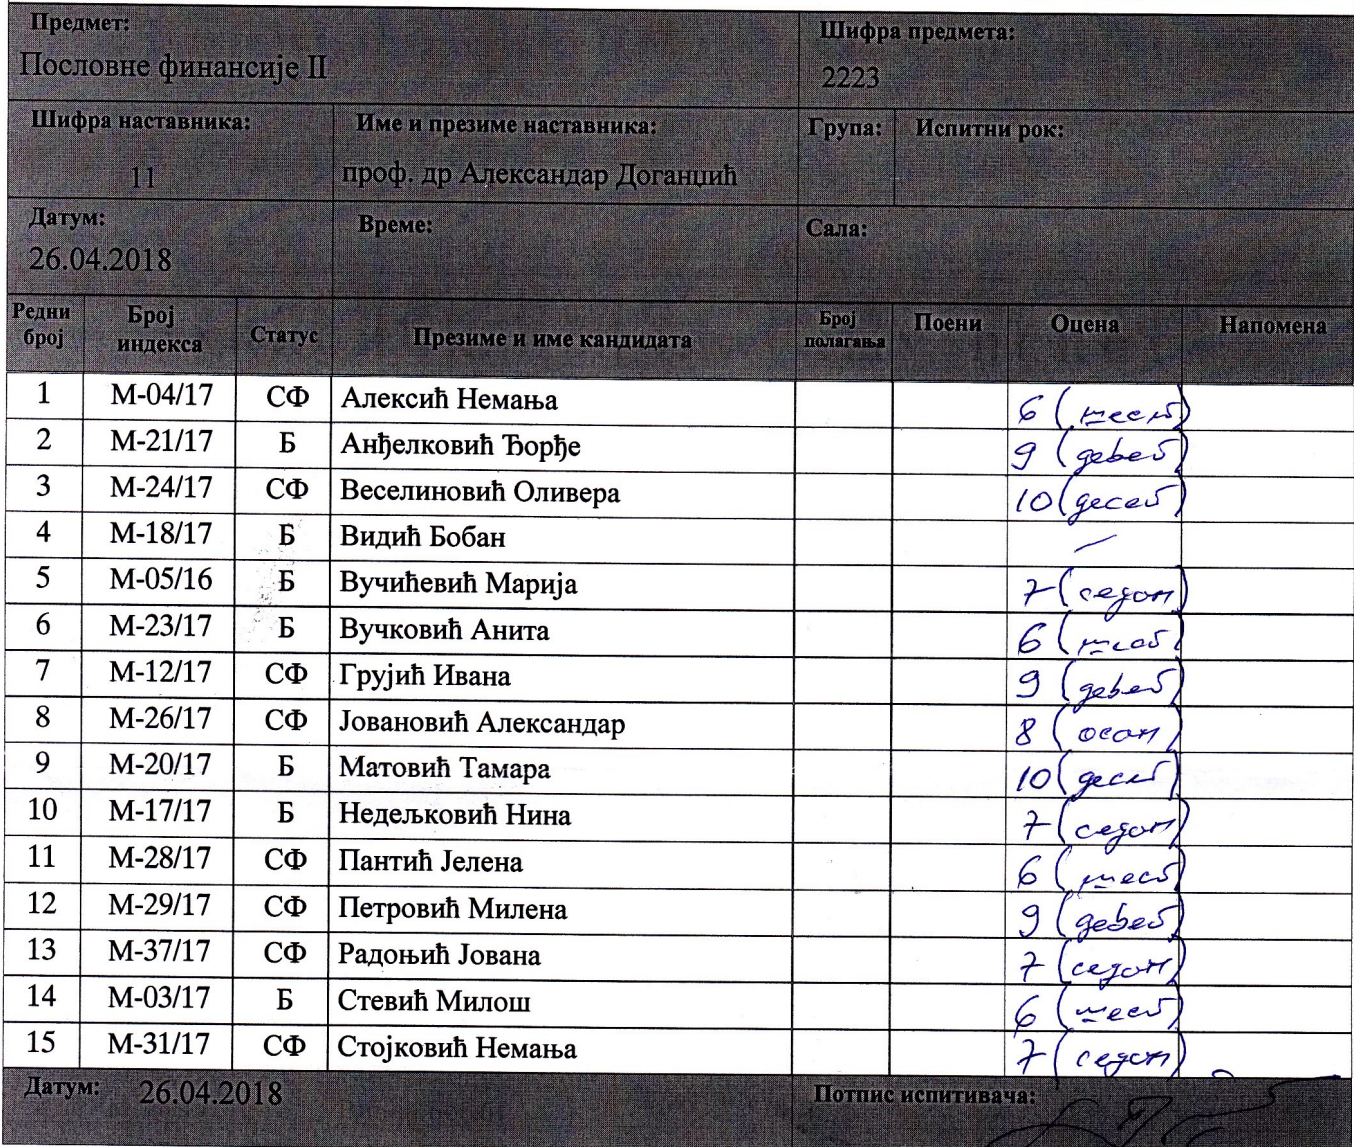 Предмет: Шифра предмета:
Пословне финансије II 2223
Шифра наставника: Име и презиме наставника: Група: Испитни рок:
11 проф. др Александар Доганџић
Датум: Време: Сала:
26.04.2018
Редни број Број индекса Статус Презиме и име кандидата Број полагања Поени Оцена Напомена
1 М-04/17 СФ Алексић Немања 6 (шест)
2 М-21/17 Б Анђелковић Ђорђе 9 (девет)
3 М-24/17 СФ Веселиновић Оливера 10 (десет)
4 М-18/17 Б Видић Бобан —
5 М-05/16 Б Вучићевић Марија 7 (седам)
6 М-23/17 Б Вучковић Анита 6 (шест)
7 М-12/17 СФ Грујић Ивана 9 (девет)
8 М-26/17 СФ Јовановић Александар 8 (осам)
9 М-20/17 Б Матовић Тамара 10 (десет)
10 М-17/17 Б Недељковић Нина 7 (седам)
11 М-28/17 СФ Пантић Јелена 6 (шест)
12 М-29/17 СФ Петровић Милена 9 (девет)
13 М-37/17 СФ Радоњић Јована 7 (седам)
14 М-03/17 Б Стевић Милош 6 (шест)
15 М-31/17 СФ Стојковић Немања 7 (седам)
Датум: 26.04.2018 Потпис испитивача: